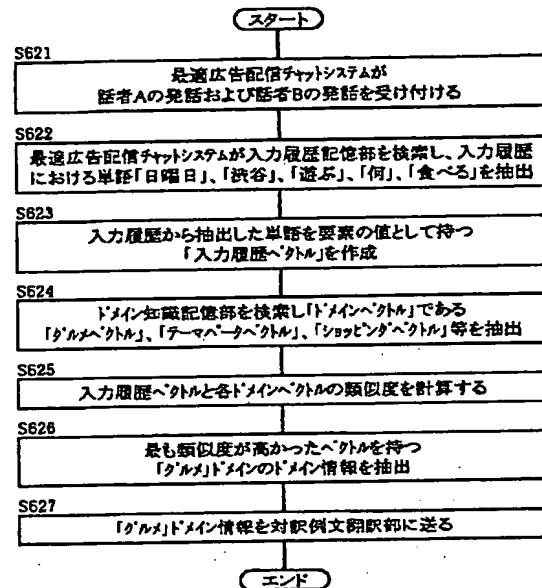 スタート
S621
最適広告配信チャットシステムが
話者Aの発話および話者Bの発話を受け付ける
S622
最適広告配信チャットシステムが入力履歴記憶部を検索し、入力履歴
における単語「日曜日」、「渋谷」、「遊ぶ」、「何」、「食べる」を抽出
S623
入力履歴から抽出した単語を要素の値として持つ
「入力履歴ベクトル」を作成
S624
ドメイン知識記憶部を検索し「ドメインベクトル」である
「グルメベクトル」、「テーマパークベクトル」、「ショッピングベクトル」等を抽出
S625
入力履歴ベクトルと各ドメインベクトルの類似度を計算する
S626
最も類似度が高かったベクトルを持つ
「グルメ」ドメインのドメイン情報を抽出
S627
「グルメ」ドメイン情報を対訳例文翻訳部に送る
エンド